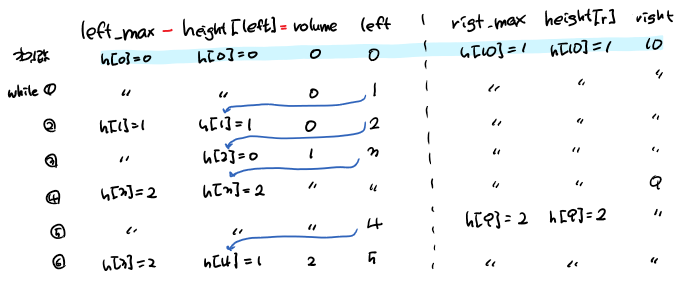 left_max - height[left] = volume left rigt_max height[r] right
초기값 h[0]=0 h[0]=0 0 0 h[10]=1 h[10]=1 10
while ① " " 0 1 " " "
② h[1]=1 h[1]=1 0 2 " " "
③ " h[2]=0 1 3 " " "
④ h[3]=2 h[3]=2 " " " " 9
⑤ " " " 4 h[9]=2 h[9]=2 "
⑥ h[3]=2 h[4]=1 2 5 " " "